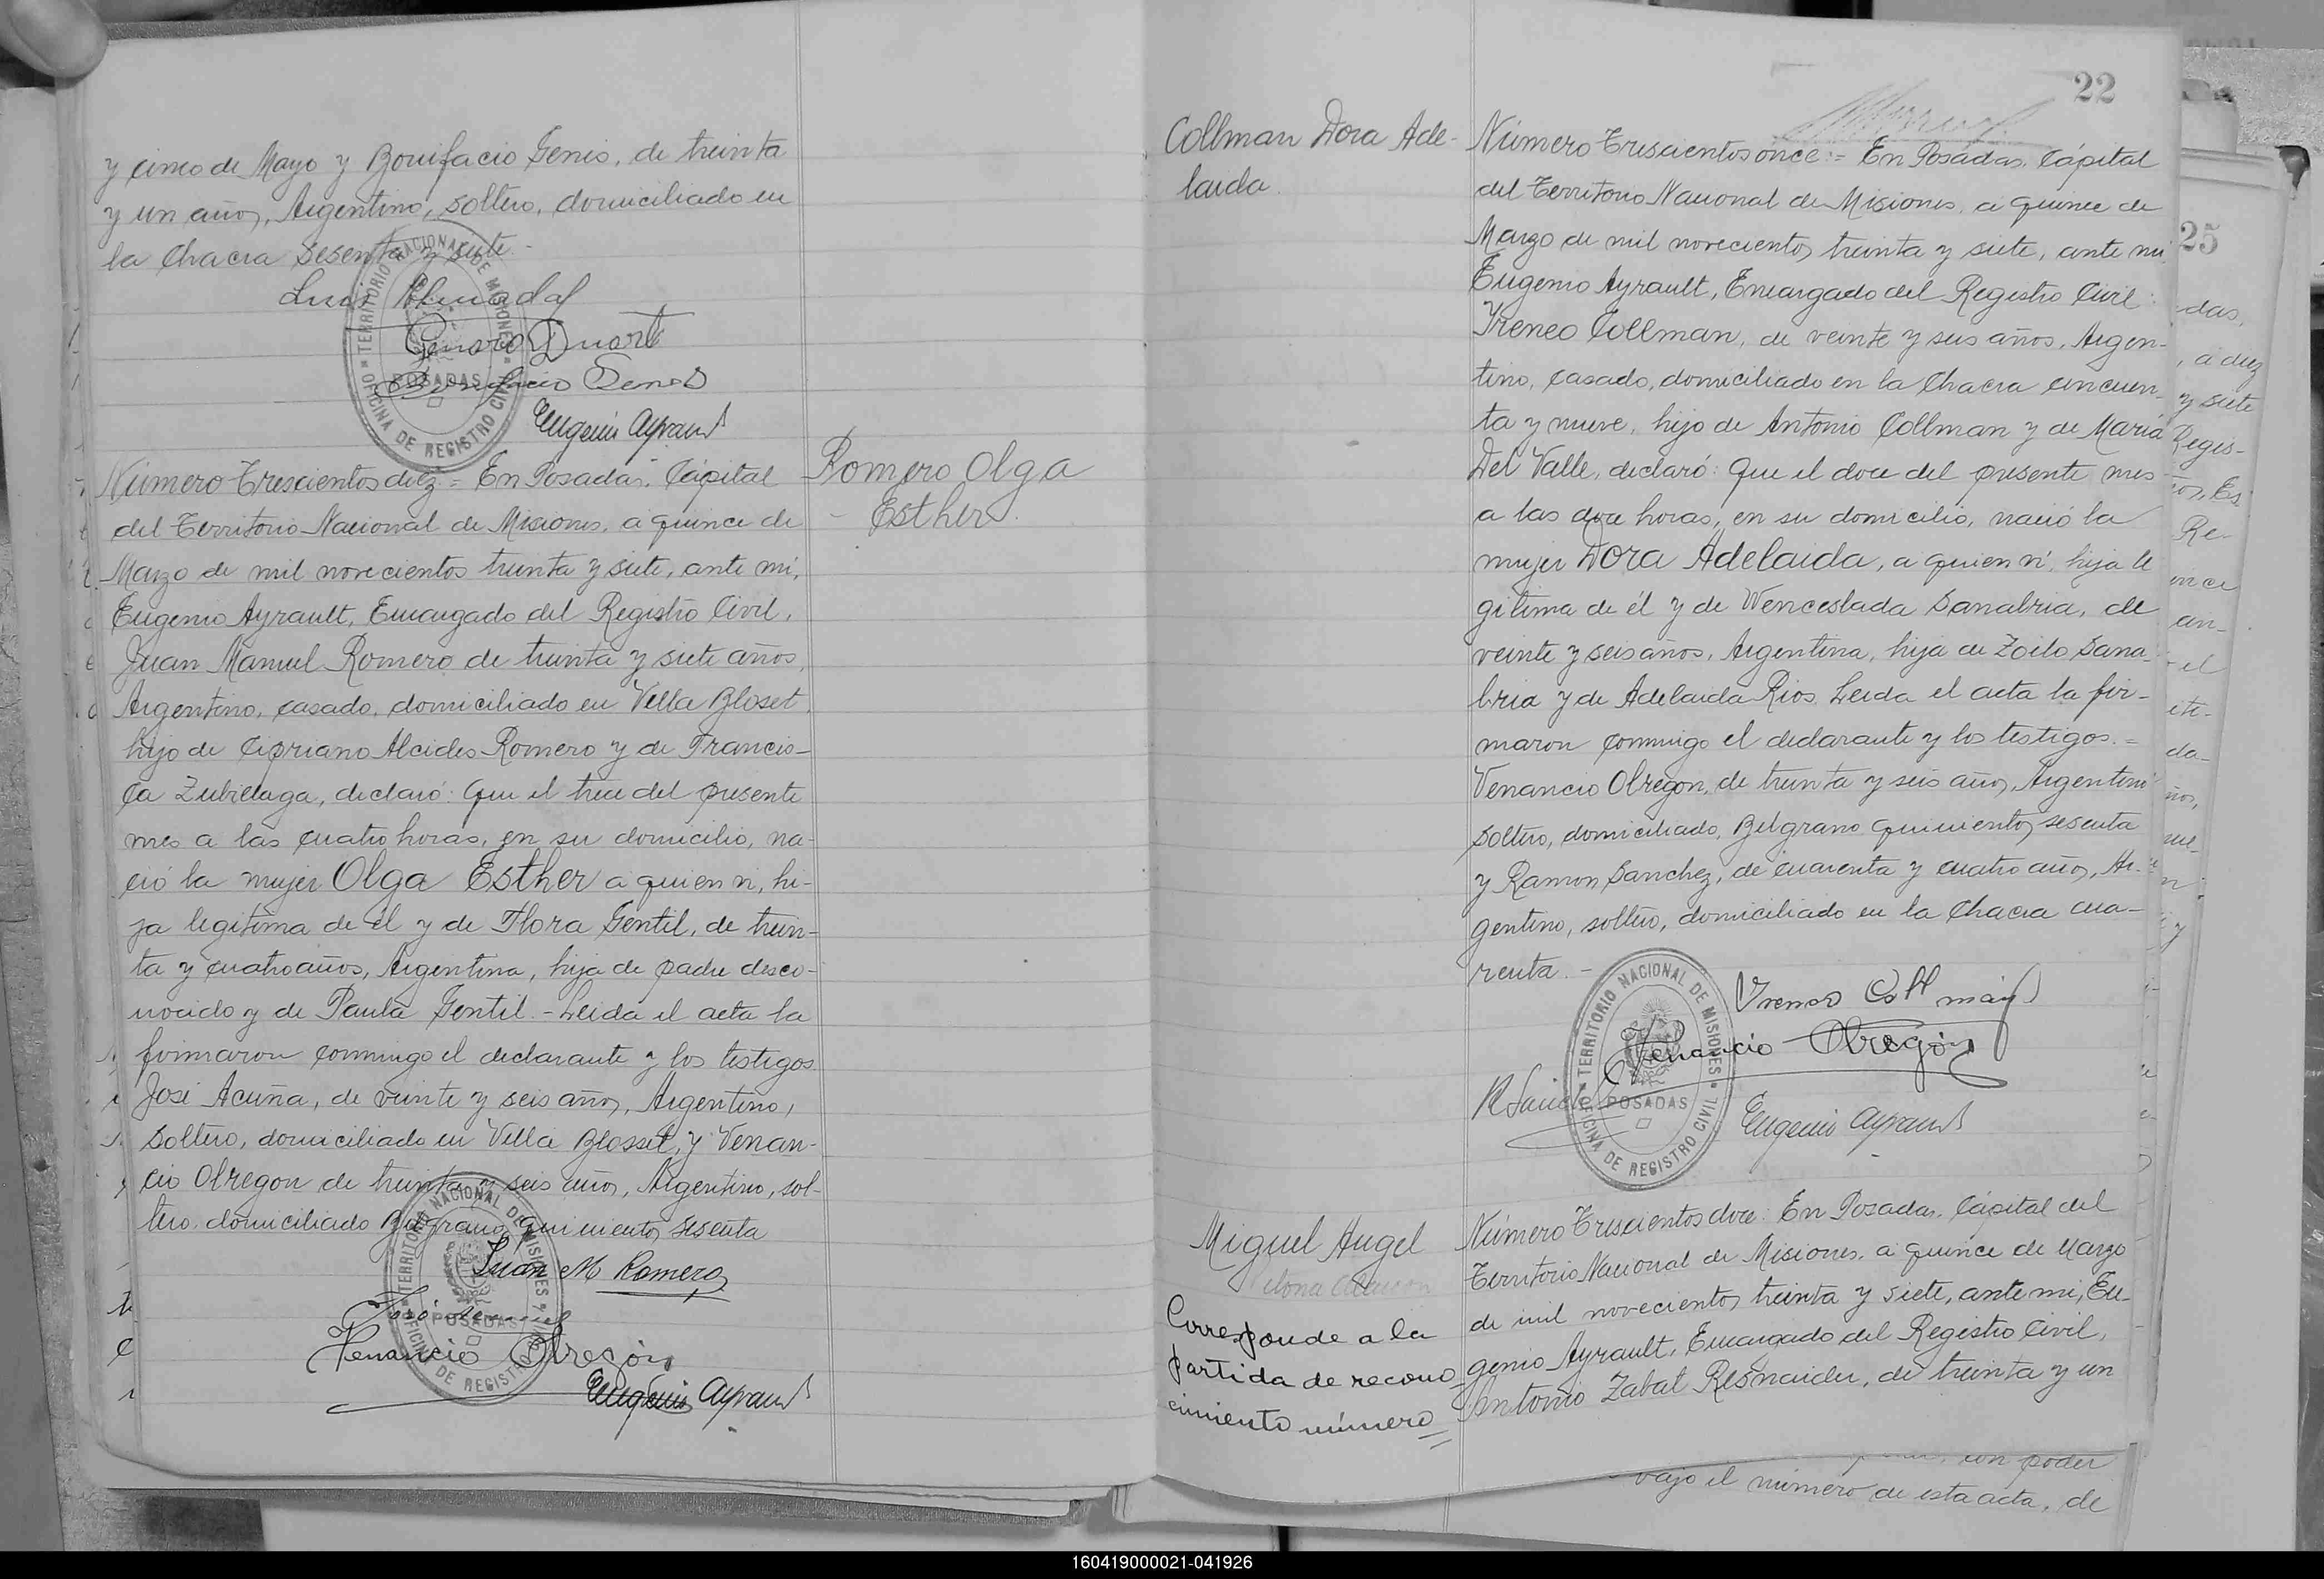 y cinco de Mayo y Bonifacio Genis, de treinta
y un años, Argentino, soltero, domiciliado en
la Chacra sesenta y siete.-
Luis
Genaro Duarte
Bonifacio Genes
Eugenio Ayrault
TERRITORIO NACIONAL DE MISIONES
POSADAS
OFICINA DE REGISTRO CIVIL
Romero Olga
Esther.
Número Trescientos diez = En Posadas, Cápital
del Territorio Nacional de Misiones, a quince de
Marzo de mil novecientos treinta y siete, ante mi,
Eugenio Ayrault, Encargado del Registro Civil,
Juan Manuel Romero de treinta y siete años,
Argentino, casado, domiciliado en Villa Bloset,
hijo de Cipriano Alcides Romero y de Francis-
ca Zubelaga, declaró: Que el trece del presente
mes a las cuatro horas, en su domicilio, na-
ció la mujer Olga Esther a quien vi, hi-
ja legitima de él y de Flora Gentil, de trein-
ta y cuatro años, Argentina, hija de padre desco-
nocido y de Paula Gentil.- Leida el acta la
firmaron conmigo el declarante y los testigos
José Acuña, de veinte y seis años, Argentino,
soltero, domiciliado en Villa Blosset, y Venan-
cio Obregon de treinta y seis años, Argentino, sol-
tero, domiciliado Belgrano quinientos sesenta
Juan M Romero
José
Venancio Obregón
Eugenio Ayrault
TERRITORIO NACIONAL DE MISIONES
POSADAS
OFICINA DE REGISTRO CIVIL
22
Collman Dora Ade-
laida.
Número Trescientos once = En Posadas, Cápital
del Territorio Nacional de Misiones, a quince de
Marzo de mil novecientos treinta y siete, ante mi
Eugenio Ayrault, Encargado del Registro Civil
Yreneo Collman, de veinte y seis años, Argen-
tino, casado, domiciliado en la Chacra cincuen-
ta y nueve, hijo de Antonio Collman y de Maria
Del Valle, declaró: Que el doce del presente mes
a las doce horas, en su domicilio, nació la
mujer Dora Adelaida, a quien vi, hija le
gitima de él y de Wenceslada Sanabria, de
veinte y seis años, Argentina, hija de Zoilo Sana-
bria y de Adelaida Rios. Leida el acta la fir-
maron conmigo el declarante y los testigos.=
Venancio Obregon, de treinta y seis años, Argentino
soltero, domiciliado, Belgrano quinientos sesenta
y Ramon Sanchez, de cuarenta y cuatro años, Ar-
gentino, soltero, domiciliado en la Chacra cua-
renta.-
Yreneo Collman
Venancio Obregón
R Sanchez
Eugenio Ayrault
TERRITORIO NACIONAL DE MISIONES
POSADAS
OFICINA DE REGISTRO CIVIL
Miguel Angel
Corresponde a la
partida de recono-
cimiento número
Número Trescientos doce: En Posadas, Cápital del
Territorio Nacional de Misiones, a quince de Marzo
de mil novecientos treinta y siete, ante mi, Eu-
genio Ayrault, Encargado del Registro Civil,
Antonio Zabat Resnaider, de treinta y un
25
das,
, a diez
y siete
Regis-
Re-
ince
an-
el
da-
con poder
bajo el número de esta acta, de
160419000021-041926